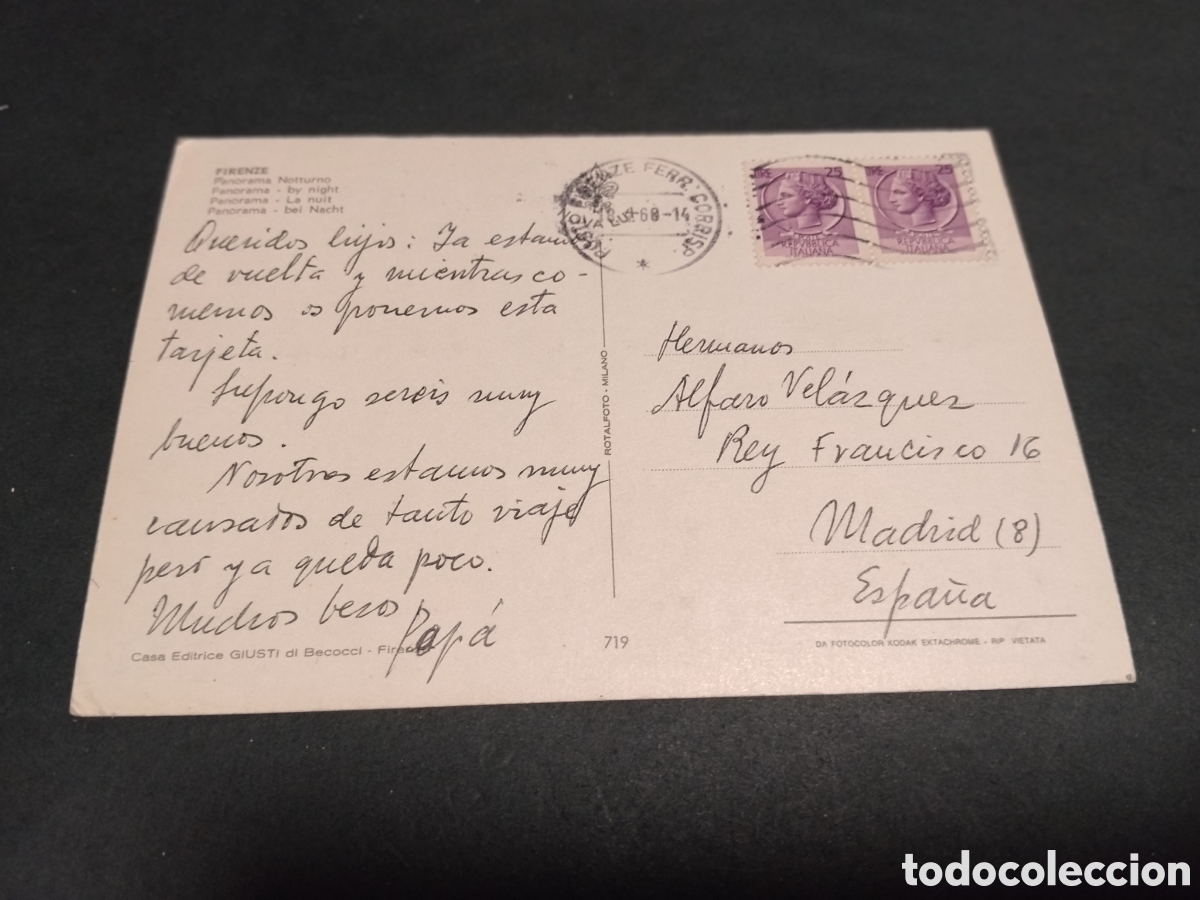 FIRENZE
Panorama Notturno
Panorama - by night
Panorama - La nuit
Panorama - bei Nacht
Queridos hijos: Ya estamos
de vuelta y mientras co-
memos os ponemos esta
tarjeta.
Supongo sereis muy
buenos.
Nosotros estamos muy
cansados de tanto viaje
pero ya queda poco.
Muchos besos
Papá
Casa Editrice GIUSTI di Becocci - Firenze
ROTALFOTO - MILANO
719
FERR. CORRISP.
68-14
25
REPVBBLICA
ITALIANA
25
REPVBBLICA
ITALIANA
Hermanos
Alfaro Velázquez
Rey Francisco 16
Madrid (8)
España
DA FOTOCOLOR KODAK EKTACHROME - RIP. VIETATA
todocoleccion